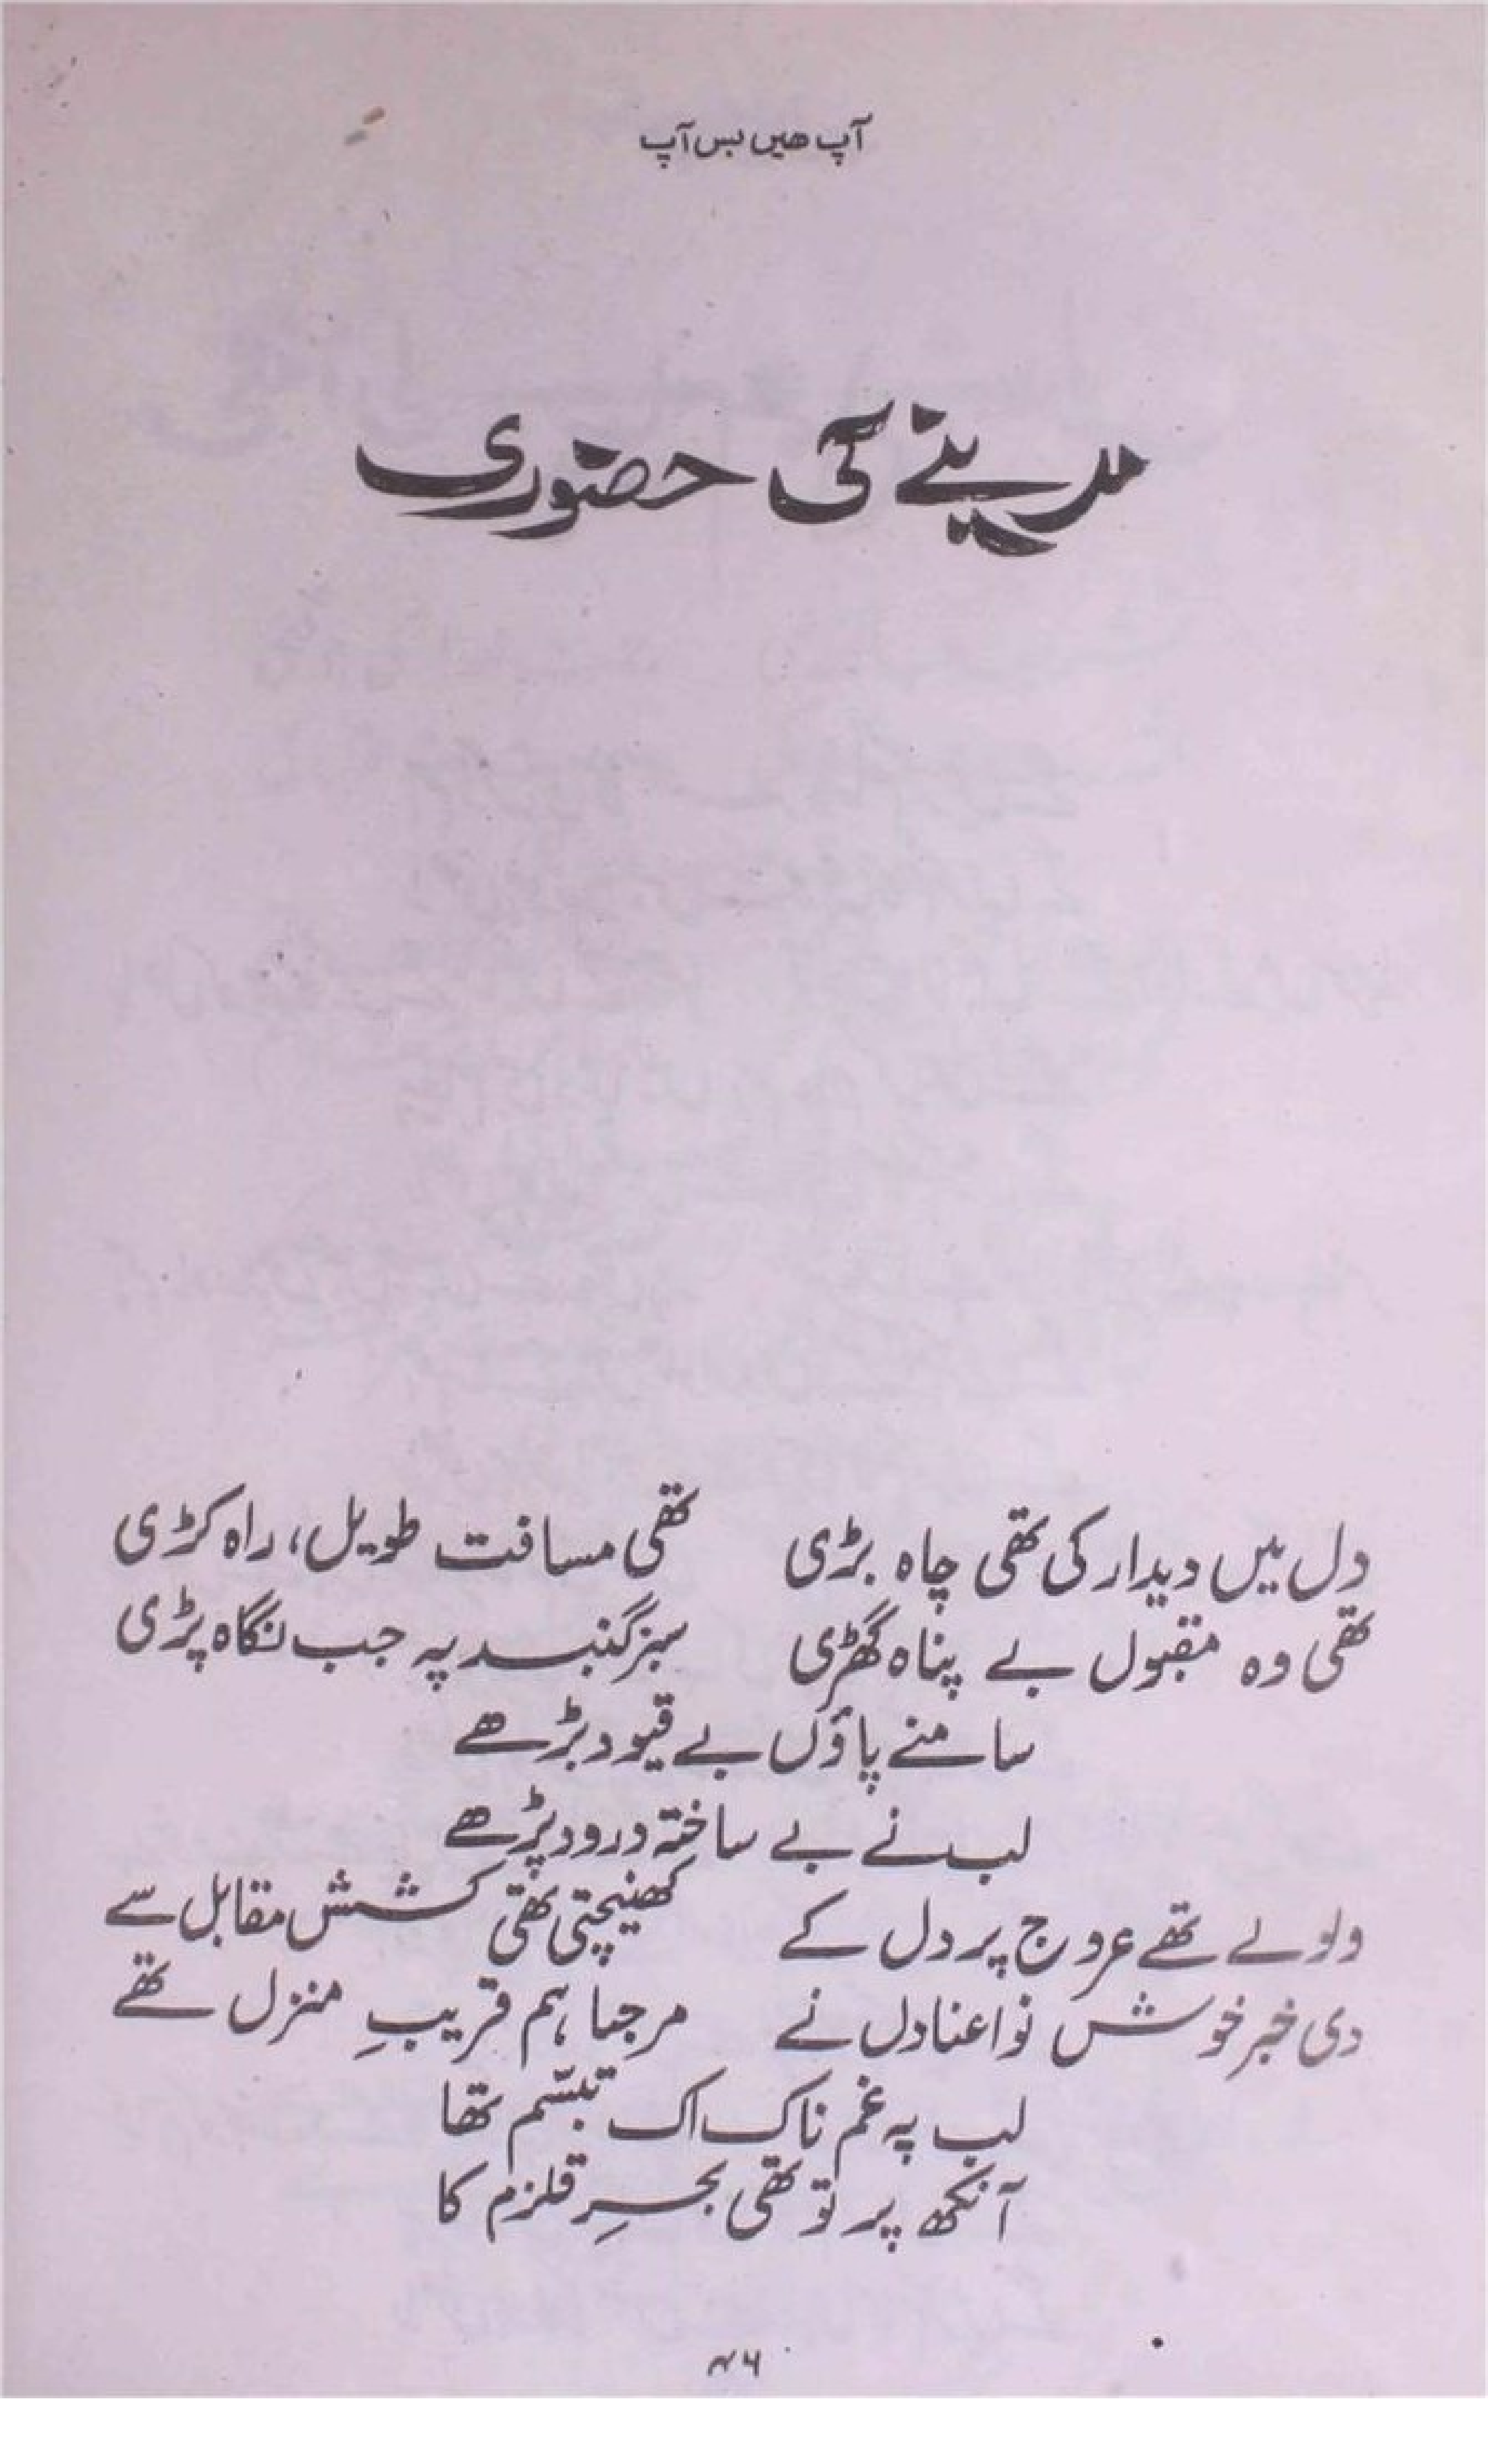 آپ ھیں بس آپ
مدینے کی حضوری
دل میں دیدار کی تھی چاہ بڑی تھی مسافت طویل، راہ کڑی
تھی وہ مقبول بے پناہ گھڑی سبز گنبد پہ جب نگاہ پڑی
سامنے پاؤں بے قیود بڑھے
لب نے بے ساختہ درود پڑھے
ولولے تھے عروج پر دل کے کھینچتی تھی کشش مقابل سے
دی خبر خوش نوا عنادل نے مرحبا ہم قریبِ منزل تھے
لب پہ غم ناک اک تبسّم تھا
آنکھ پر تو تھی بحرِ قلزم کا